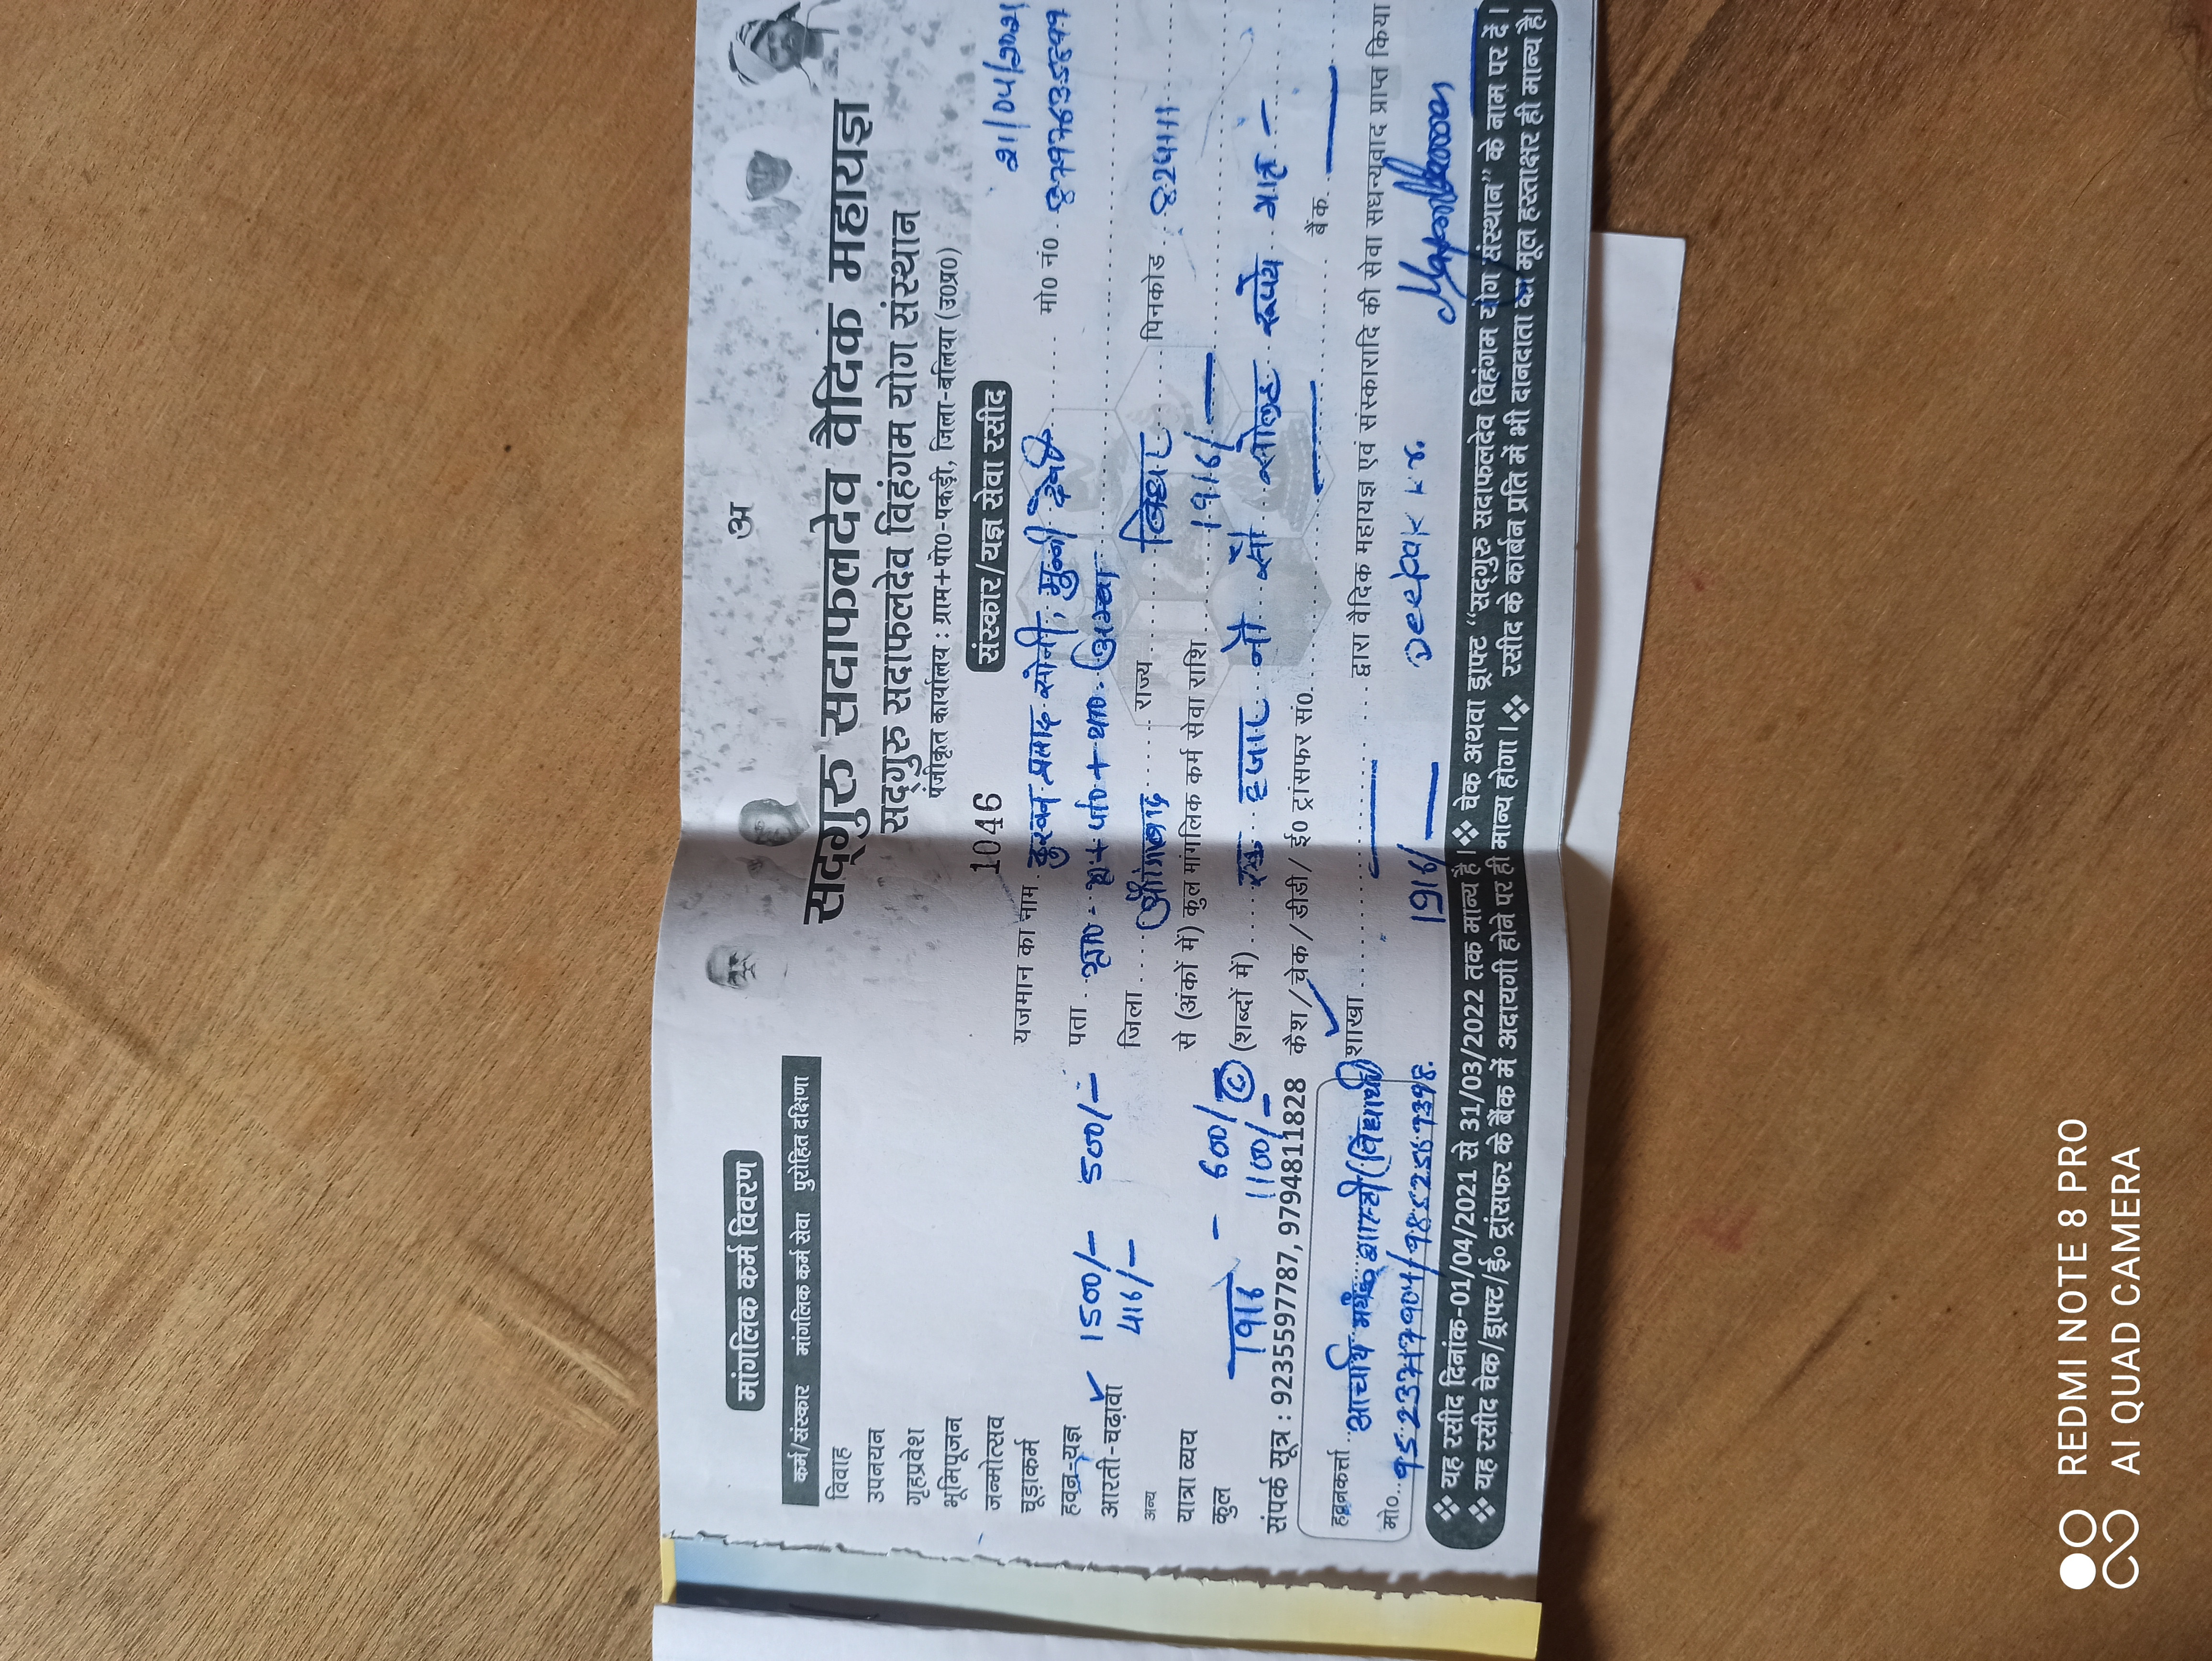 अ
सद्‌गुरु सदाफलदेव वैदिक महायज्ञ
सद्‌गुरु सदाफलदेव विहंगम योग संस्थान
पंजीकृत कार्यालय : ग्राम+पो०-पकड़ी, जिला-बलिया (उ०प्र०)
1046 संस्कार/यज्ञ सेवा रसीद 21/04/2021
यजमान का नाम प्रसाद सोनी, मुन्नी देवी मो० नं०
पता
जिला औरंगाबाद राज्य बिहार पिनकोड 824111
से (अंकों में) कुल मांगलिक कर्म सेवा राशि 1916/
(शब्दों में) एक हजार नौ सौ सोलह रूपये मात्र -
कैश/चेक/डीडी/ ई० ट्रांसफर सं० बैंक
शाखा द्वारा वैदिक महायज्ञ एवं संस्कारादि की सेवा सधन्यवाद प्राप्त किया
1916/ Deepak Kr.
मांगलिक कर्म विवरण
कर्म/संस्कार मांगलिक कर्म सेवा पुरोहित दक्षिणा
विवाह
उपनयन
गृहप्रवेश
भूमिपूजन
जन्मोत्सव
चूड़ाकर्म
हवन-यज्ञ 1500/- 500/-
आरती-चढ़ावा 416/-
अन्य
यात्रा व्यय - 600/
कुल 1916 1100/
संपर्क सूत्र : 9235597787, 9794811828
हवनकर्त्ता आचार्य शास्त्री (विद्यार्थी)
मो०
❖ यह रसीद दिनांक-01/04/2021 से 31/03/2022 तक मान्य है।❖ चेक अथवा ड्राफ्ट “सद्‌गुरु सदाफलदेव विहंगम योग संस्थान” के नाम पर दें।
❖ यह रसीद चेक/ड्राफ्ट/ई० ट्रांसफर के बैंक में अदायगी होने पर ही मान्य होगा।❖ रसीद के कार्बन प्रति में भी दानदाता का मूल हस्ताक्षर ही मान्य है।
REDMI NOTE 8 PRO
AI QUAD CAMERA